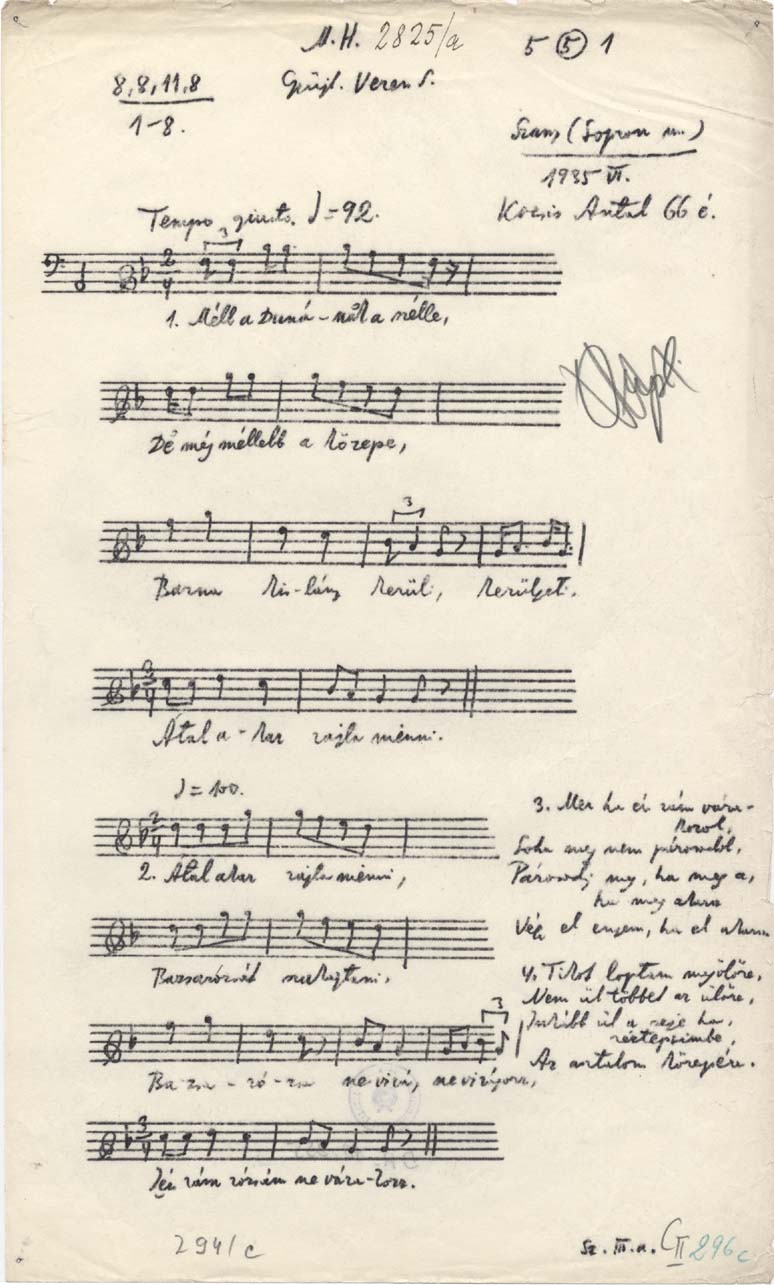 M.H. 2825/a
5 (5) 1
8,8,11,8
1-8.
Gyűjt. Veress S.
Szany (Sopron m.)
1935 VI.
Kocsis Antal 66 é.
Tempo giusto. ♩=92.
3
2/4
1. Méll a Duná-nak a szélle,
Dě még méllebb a közepe,
3
Barna kis-lány kerüli, kerülgeti,
3/4
Átal a-kar rajla mënni.
♩=100.
2/4
2. Átal akar rajla mënni,
Bazsarózsát szakajtani,
3
Bazsa-ró-zsa ne virú, ne virágozz,
3/4
Jéi rám rózsám ne vára-kozz.
3. Mer ha éi rám vára-
kozol,
Soha meg nem párosodol,
Párosodj meg, ha meg a,
ha meg akarsz
Végy el engem, ha el akarsz
4. Tikot loptam megölőre,
Nem ül többet az ülőre,
Inkább ül a
Az asztalom közepére.
294/c
Sz. III. a. C II 296c